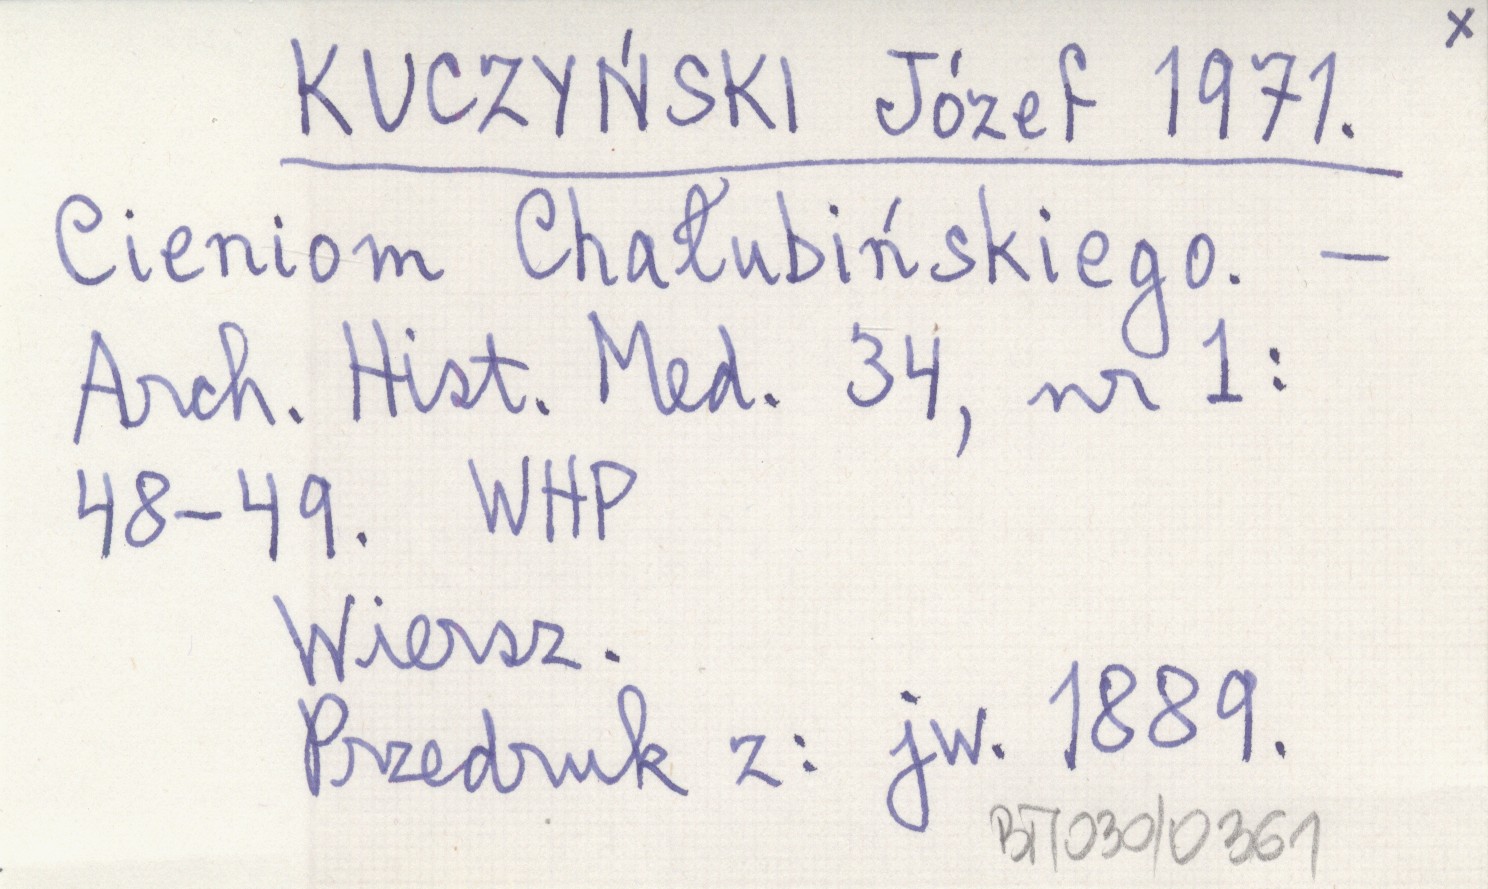 x
KUCZYŃSKI Józef 1971.
Cieniom Chałubińskiego. —
Arch. Hist. Med. 34, nr 1:
48-49. WHP
Wiersz.
Przedruk z: jw. 1889.
BT/030/0361